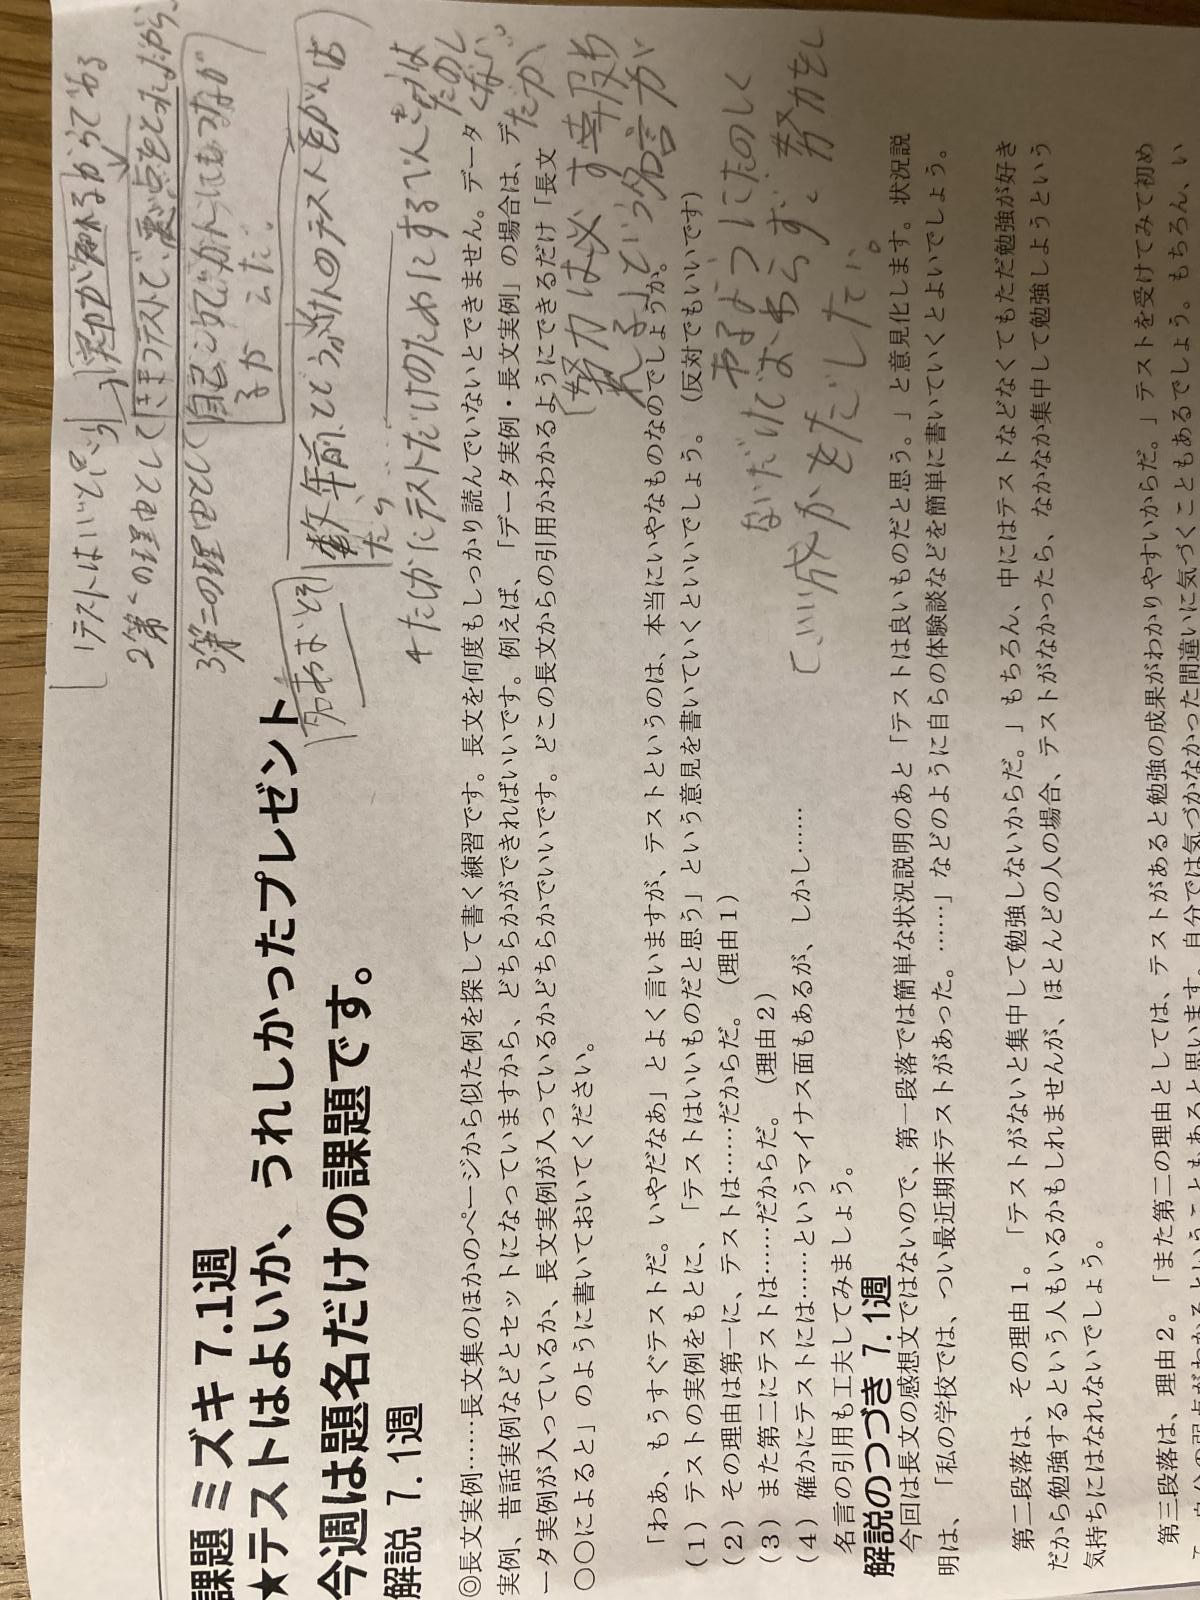 課題 ミズキ 7.1週
★テストはよいか、うれしかったプレゼント
今週は題名だけの課題です。
解説 7.1週
◎長文実例……長文集のほかのページから似た例を探して書く練習です。長文を何度もしっかり読んでいないとできません。データ
実例、昔話実例などとセットになっていますから、どちらかができればいいです。例えば、「データ実例・長文実例」の場合は、デ
ータ実例が入っているか、長文実例が入っているかどちらかでいいです。どこの長文からの引用かわかるようにできるだけ「長文
〇〇によると」のように書いておいてください。
「わあ、もうすぐテストだ。いやだなあ」とよく言いますが、テストというのは、本当にいやなものなのでしょうか。
(1) テストの実例をもとに、「テストはいいものだと思う」という意見を書いていくといいでしょう。(反対でもいいです)
(2) その理由は第一に、テストは……だからだ。(理由1)
(3) また第二にテストは……だからだ。(理由2)
(4) 確かにテストには……というマイナス面もあるが、しかし……
名言の引用も工夫してみましょう。
解説のつづき 7.1週
今回は長文の感想文ではないので、第一段落では簡単な状況説明のあと「テストは良いものだと思う。」と意見化します。状況説
明は、「私の学校では、つい最近期末テストがあった。……」などのように自らの体験談などを簡単に書いていくとよいでしょう。
第二段落は、その理由1。「テストがないと集中して勉強しないからだ。」もちろん、中にはテストなどなくてもただ勉強が好き
だから勉強するという人もいるかもしれませんが、ほとんどの人の場合、テストがなかったら、なかなか集中して勉強しようという
気持ちにはなれないでしょう。
第三段落は、理由2。「また第二の理由としては、テストがあると勉強の成果がわかりやすいからだ。」テストを受けてみて初め
自分では気づかなかった間違いに気づくこともあるでしょう。もちろん、い
1テストはいいと思う
実力が知れるからである
2第一の理由として
テストで悪い点をとったから、
3第二の理由として
数年前
4たしかにテストだけのためにする
「努力は必ず幸段
という名言が
成かをだしたい。